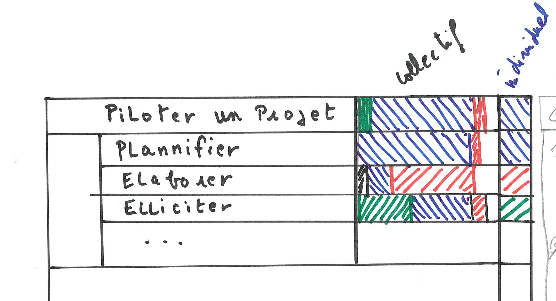 collectif
individuel
PiLoter un Projet
PLannifier
ELaborer
ELLiciter
...